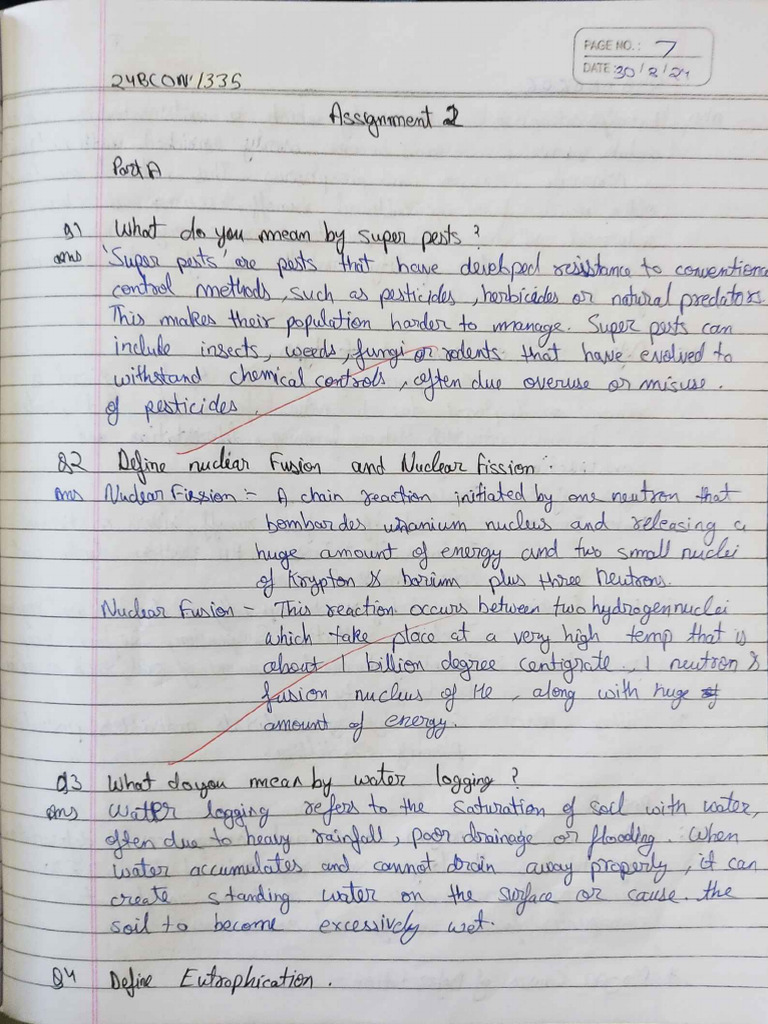 PAGE NO.: 7
DATE: 30/8/24
24BCON1335
Assignment 2
Part A
Q1 What do you mean by super pests ?
ans 'Super pests' are pests that have developed resistance to conventiona
control methods, such as pesticides, herbicides or natural predators.
This makes their population harder to manage. Super pests can
include insects, weeds, fungi or rodents that have evolved to
withstand chemical controls, often due overuse or misuse.
of pesticides.
Q2 Define nuclear Fusion and Nuclear fission.
Ans Nuclear Fission :- A chain reaction initiated by one neutron that
bombardes uranium nucleus and releasing a
huge amount of energy and two small nuclei
of Krypton & barium plus three neutrons.
Nuclear Fusion - This reaction occurs between two hydrogen nuclei
which take place at a very high temp that is
about 1 billion degree centigrate, 1 neutron &
fusion nucleus of He, along with huge
amount of energy.
Q3 What do you mean by water logging ?
Ans Water logging refers to the saturation of soil with water,
often due to heavy rainfall, poor drainage or flooding. When
water accumulates and cannot drain away properly, it can
create standing water on the surface or cause the
soil to become excessively wet.
Q4 Define Eutrophication.